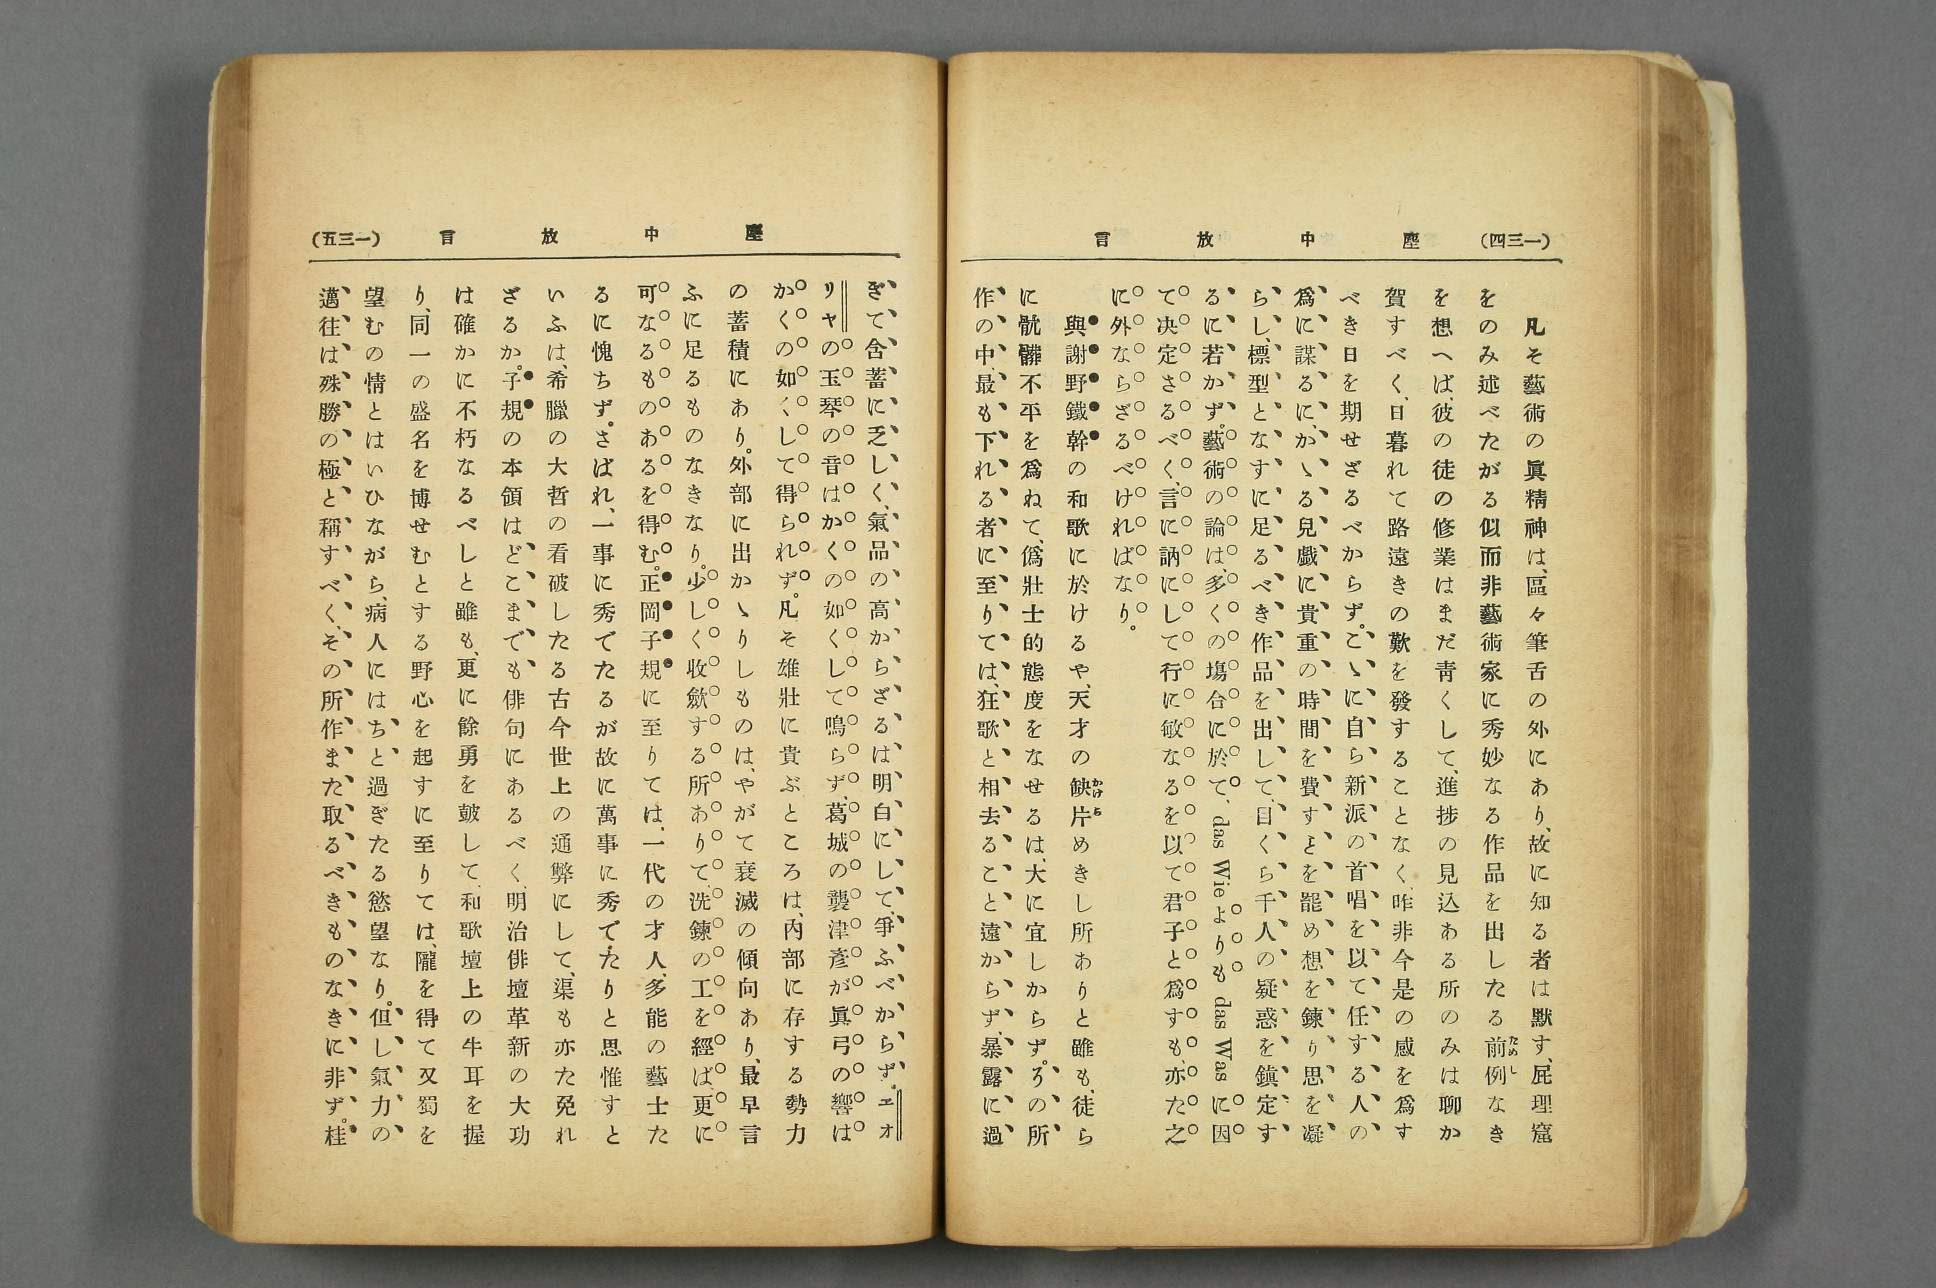 (一三四)
塵中放言
凡そ藝術の眞精神は、區々筆舌の外にあり、故に知る者は默す、屁理窟
をのみ述べたがる似而非藝術家に秀妙なる作品を出したる前例なき
を想へば、彼の徒の修業はまだ靑くして、進捗の見込ある所のみは聊か
賀すべく、日暮れて路遠きの歎を發することなく、昨非今是の感を爲す
べき日を期せざるべからず。こゝに自ら新派の首唱を以て任する人の
爲に謀るに、かゝる兒戲に貴重の時間を費すを罷め想を鍊り思を凝
らし、標型となすに足るべき作品を出して、目くら千人の疑惑を鎭定す
るに若かず。藝術の論は、多くの塲合に於て、das Wieよりも das Was に因
て决定さるべく、言に訥にして行に敏なるを以て君子と爲すも、亦た之
に外ならざるべければなり。
與謝野鐵幹の和歌に於けるや、天才の缺片めきし所ありと雖も、徒ら
に骯髒不平を爲ねて、僞壯士的態度をなせるは、大に宜しからず。その所
作の中、最も下れる者に至りては、狂歌と相去ること遠からず、暴露に過
塵中放言
(一三五)
ぎて含蓄に乏しく、氣品の高からざるは明白にして、爭ふべからず。エオ
リヤの玉琴の音はかくの如くして鳴らず、葛城の襲津彥が眞弓の響は
かくの如くして得られず。凡そ雄壯に貴ぶところは、內部に存する勢力
の蓄積にあり。外部に出かゝりしものは、やがて衰滅の傾向あり、最早言
ふに足るものなきなり。少しく收斂する所ありて、洗鍊の工を經ば、更に
可なるものあるを得む。正岡子規に至りては、一代の才人、多能の藝士た
るに愧ちず。さばれ、一事に秀でたるが故に萬事に秀でたりと思惟すと
いふは、希臘の大哲の看破したる古今世上の通弊にして、渠も亦た免れ
ざるか。子規の本領はどこまでも俳句にあるべく、明治俳壇革新の大功
は確かに不朽なるべしと雖も、更に餘勇を皷して、和歌壇上の牛耳を握
り、同一の盛名を博せむとする野心を起すに至りては、隴を得て又蜀を
望むの情とはいひながら、病人にはちと過ぎたる慾望なり。但し氣力の
邁往は殊勝の極と稱すべく、その所作また取るべきものなきに非ず。桂
ため し
かけ ら